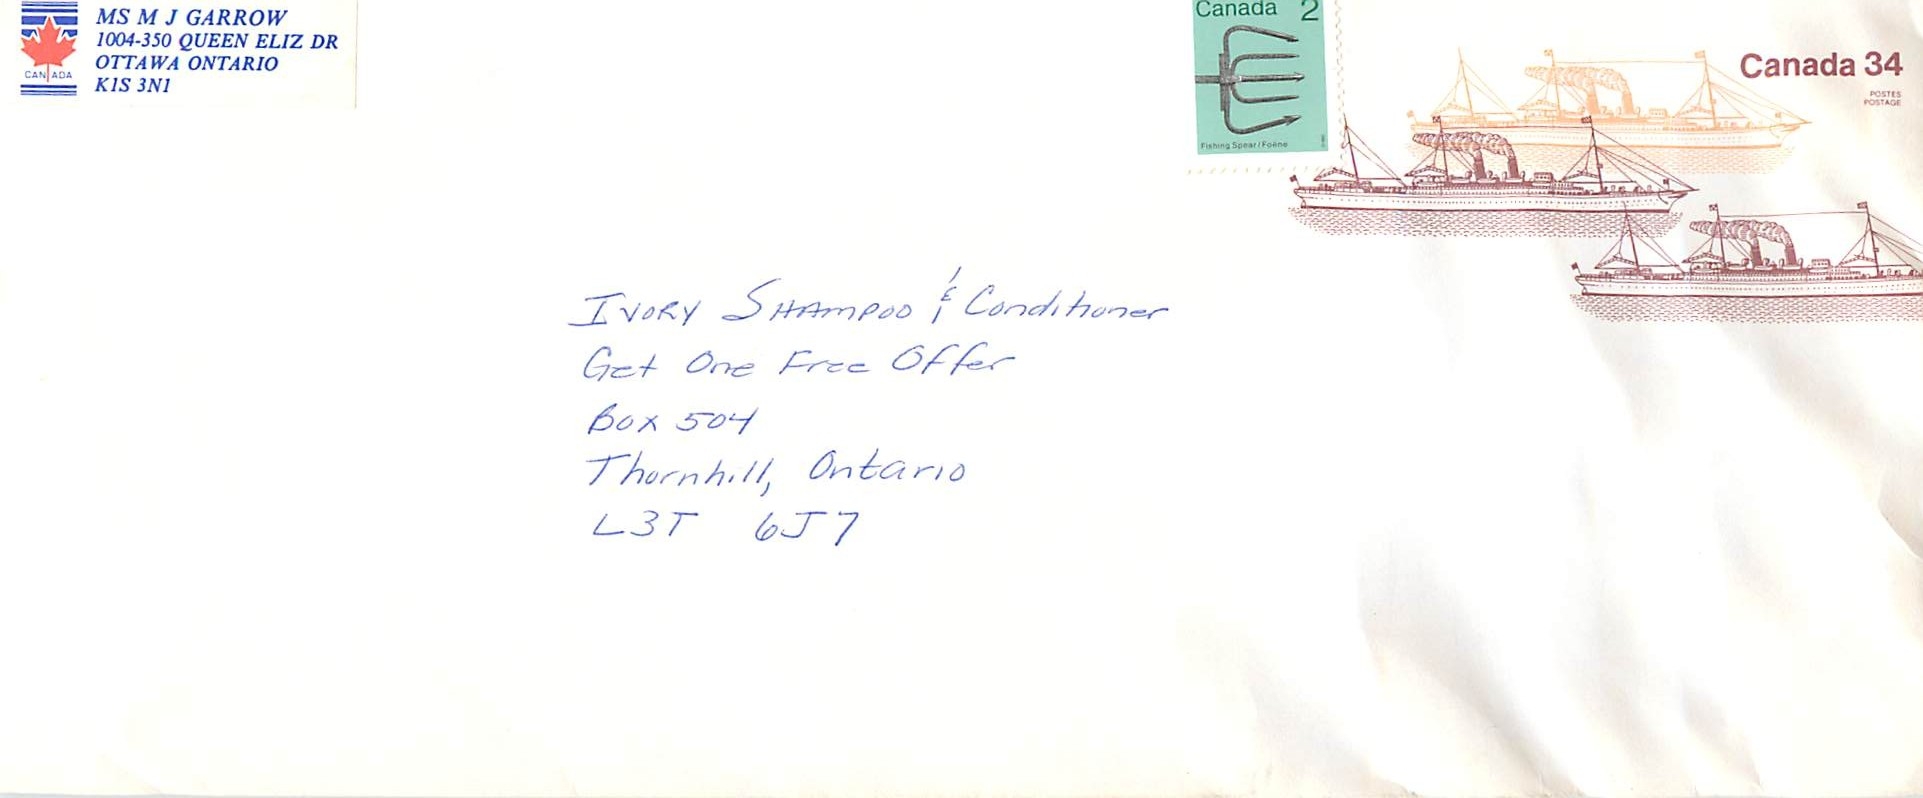 MS M J GARROW
1004-350 QUEEN ELIZ DR
OTTAWA ONTARIO
K1S 3N1
CANADA
Canada 2
Fishing Spear / Foëne
Canada 34
POSTES
POSTAGE
Ivory Shampoo & Conditioner
Get One Free Offer
Box 504
Thornhill, Ontario
L3T 6J7